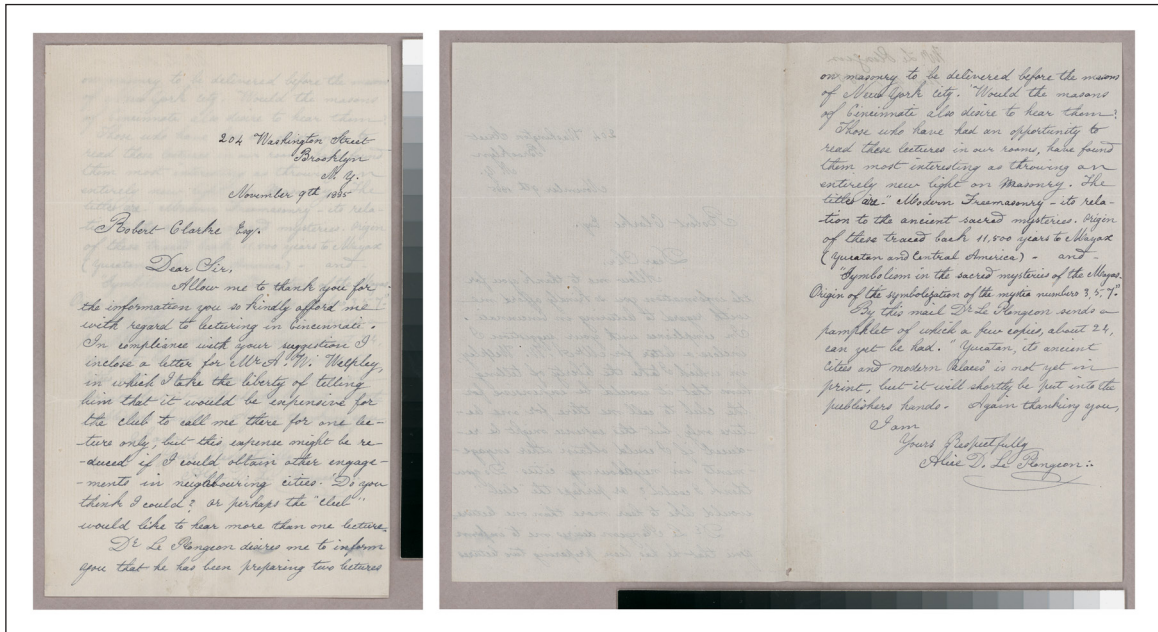 204 Washington Street
Brooklyn
N.Y.
November 9th 1885
Robert Clarke Esq.
Dear Sir,
Allow me to thank you for
the information you so kindly afford me
with regard to lecturing in Cincinnati.
In compliance with your suggestion I
inclose a letter for Mr A. W. Whelpley,
in which I take the liberty of telling
him that it would be expensive for
the club to call me there for one lec-
-ture only, but this expense might be re-
-duced if I could obtain other engage-
-ments in neighbouring cities. Do you
think I could? or perhaps the "club"
would like to hear more than one lecture.
Dr Le Plongeon desires me to inform
you that he has been preparing two lectures
on masonry to be delivered before the masons
of New York city. Would the masons
of Cincinnati also desire to hear them?
Those who have had an opportunity to
read these lectures in our rooms, have found
them most interesting as throwing an
entirely new light on Masonry. The
titles are- "Modern Freemasonry - its rela-
tion to the ancient sacred mysteries. Origin
of these traced back 11,500 years to Mayax
(Yucatan and Central America) - and -
"Symbolism in the sacred mysteries of the Mayas.
Origin of the symbolization of the mystic numbers 3, 5, 7."
By this mail Dr Le Plongeon sends a
pamphlet of which a few copies, about 24,
can yet be had. "Yucatan, its ancient
cities and modern Palaces" is not yet in
print, but it will shortly be put into the
publishers hands. Again thanking you,
I am
Yours Respectfully
Alice D. Le Plongeon